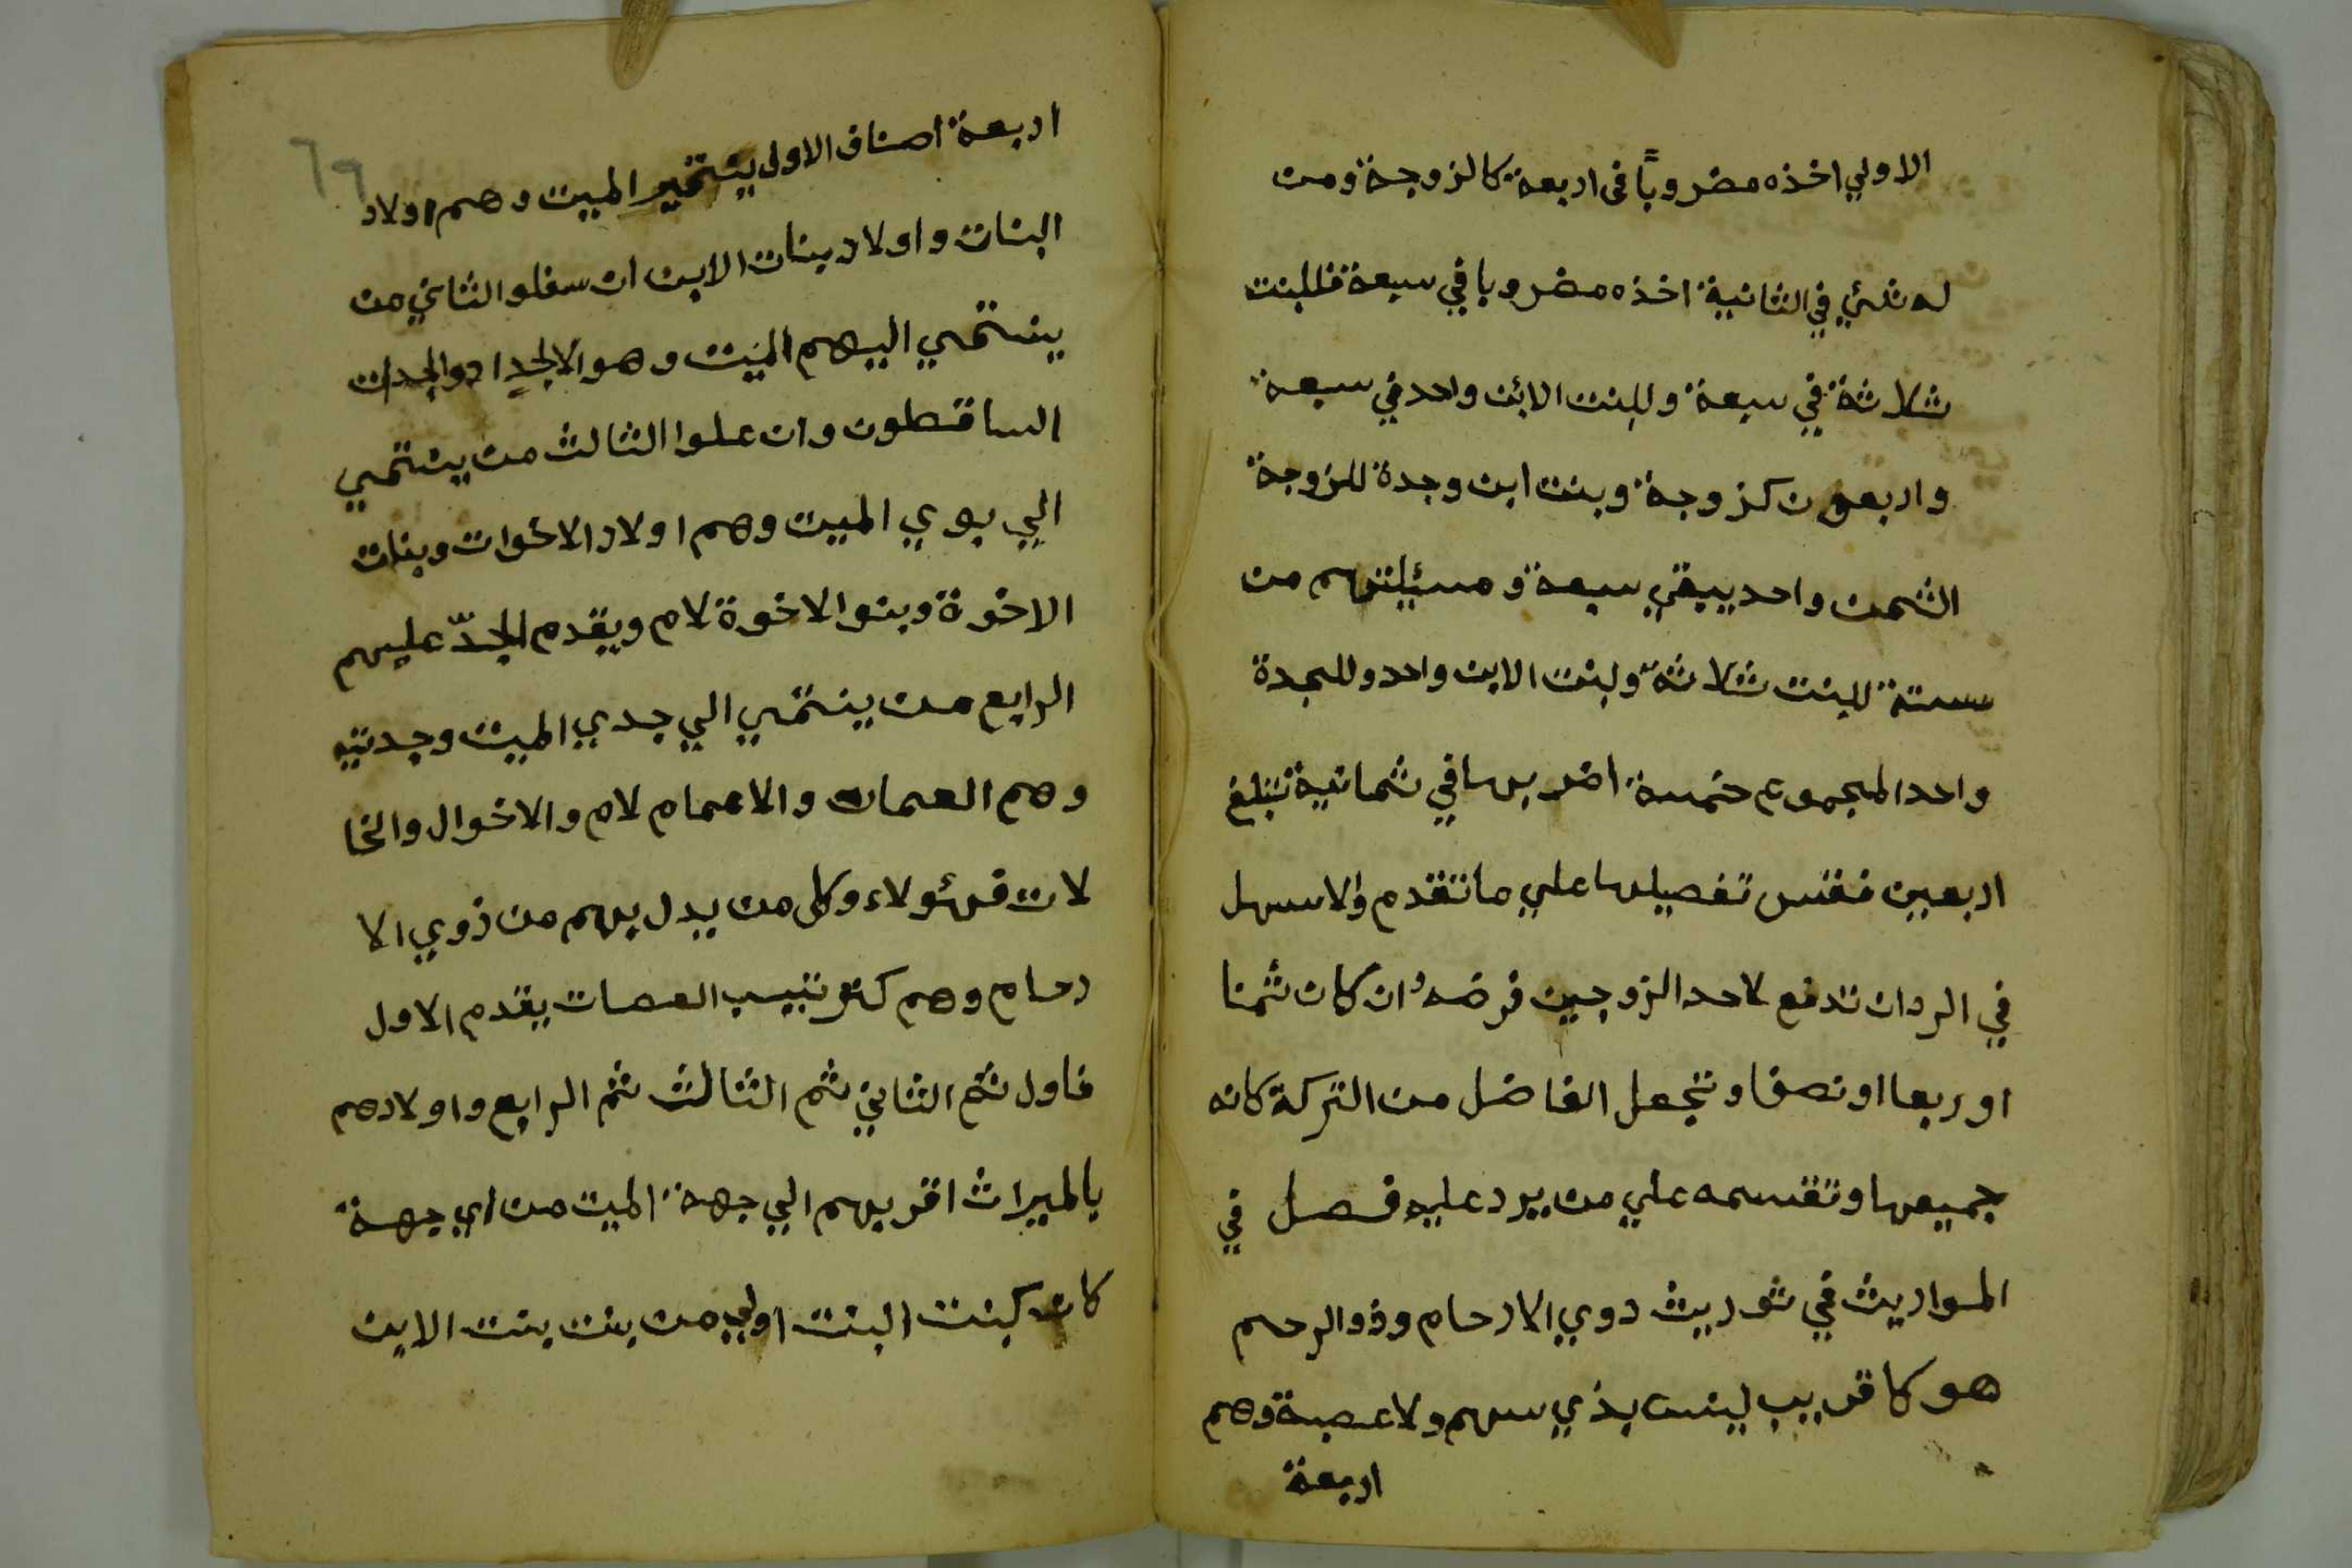 الاولي اخذه مضروبًا فى اربعة كالزوجة ومن
له شئي في الثانية اخذه مضروبا في سبعة فللبنت
ثلاثة في سبعة وللبنت الابن واحد في سبعة
واربعون كزوجة وبنت ابن وجدة للزوجة
الثمن واحد يبقي سبعة ومسئلتهم من
ستة للبنت ثلاثة ولبنت الابن واحد وللجدة
واحد المجموع خمسة اضربها في ثمانية تبلغ
اربعين فقس تفصيلها علي ما تقدم والاسهل
في الرد ان تدفع لاحد الزوجين فرضه ان كان ثمنا
او ربعا او نصفا وتجعل الفاضل من التركة كانه
جميعها وتقسمه علي من يرد عليه فصل في
المواريث في توريث دوي الارحام وذو الرحم
هو كا قريب ليس بذي سهم ولا عصبة وهم
اربعة
٦٩
اربعة اصناف الاولى ينتمي الميت وهم اولاد
البنات واولاد بنات الابن ان سفلو الثاني من
ينتمي اليهم الميت وهو الاجداد والجدات
الساقطون وان علوا الثالث من ينتمي
الي بوي الميت وهم اولاد الاخوات وبنات
الاخوة وبنوا الاخوة لام ويقدم الجدّ عليهم
الرابع من ينتمي الي جدي الميت وجدتيه
وهم العمات والاعمام لام والاخوال والخا
لات فهئولاء وكل من يدل بهم من ذوي الا
رحام وهم كترتبيب العصات يقدم الاول
فاول ثم الثاني ثم الثالث ثم الرابع واولادهم
بالميراث اقربهم الي جهة الميت من اي جهة
كان كبنت البنت اولي من بنت بنت الابن